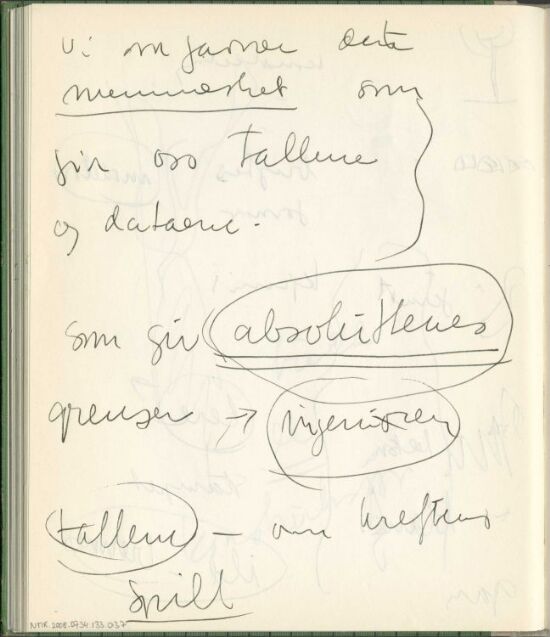 vi må favne dette
mennesket som
gir oss tallene
og dataene.
som gir absoluttenes
grenser → ingeniøren
tallene – om kreftenes
spill
NMK.2008.0734.133.037